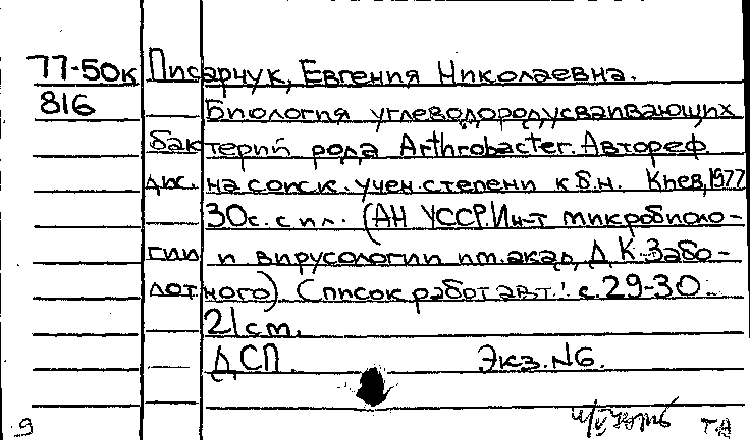 77-50к Писарчук, Евгения Николаевна.
816 Биология углеводородусваивающих
бактерий рода Arthrobacter. Автореф.
дис. на соиск. учен. степени к.б.н. Киев, 1977
30с. с ил. (АН УССР. Ин-т микробиоло-
гии и вирусологии им. акад. Д.К. Забо-
лотного). Список работ авт.: с. 29-30.
21 см.
ДСП. Экз. №6.
9 ТА